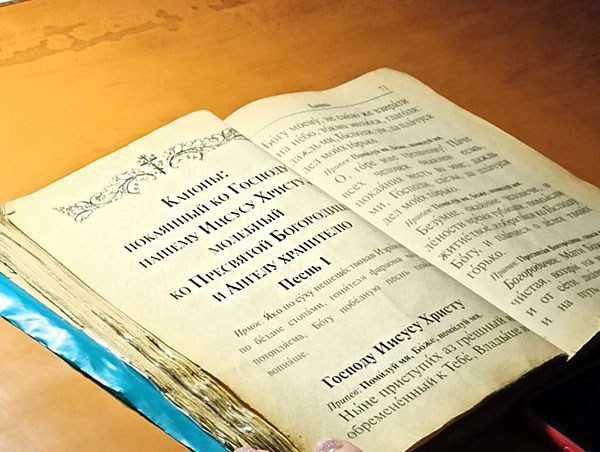 Каноны:
покаянный ко Господу
нашему Иисусу Христу,
молебный
ко Пресвятой Богородице
и Ангелу хранителю
Песнь 1
Ирмос: Яко по суху пешешествовав Израиль,
по бездне стопами, гонителя фараона
потопляема, Богу победную песнь
вопияше.
Господу Иисусу Христу
Припев: Помилуй мя, Боже, помилуй мя.
Ныне приступих аз грешный
обремененный к Тебе, Владыце
71
Каноны
Богу моему; не смею же взирати
на небо, токмо молюся, глаголя:
даждь ми, Господи, ум, да плачуся
дел моих горько.
Припев: Помилуй мя, Боже, помилуй мя.
О, горе мне грешному! Паче
всех человек окаянен есмь,
покаяния несть во мне; даждь
ми, Господи, слезы, да плачуся
дел моих горько.
Припев: Помилуй мя, Боже, помилуй
Безумне, окаянне человече, в
лености время губиши;
житие твое, и обратися ко Господу
Богу, и плачися о делех твоих
горько.
Припев: Пресвятая Богородице
Богородичен: Мати Божия
чистая, воззри на
и от сети
и на путь